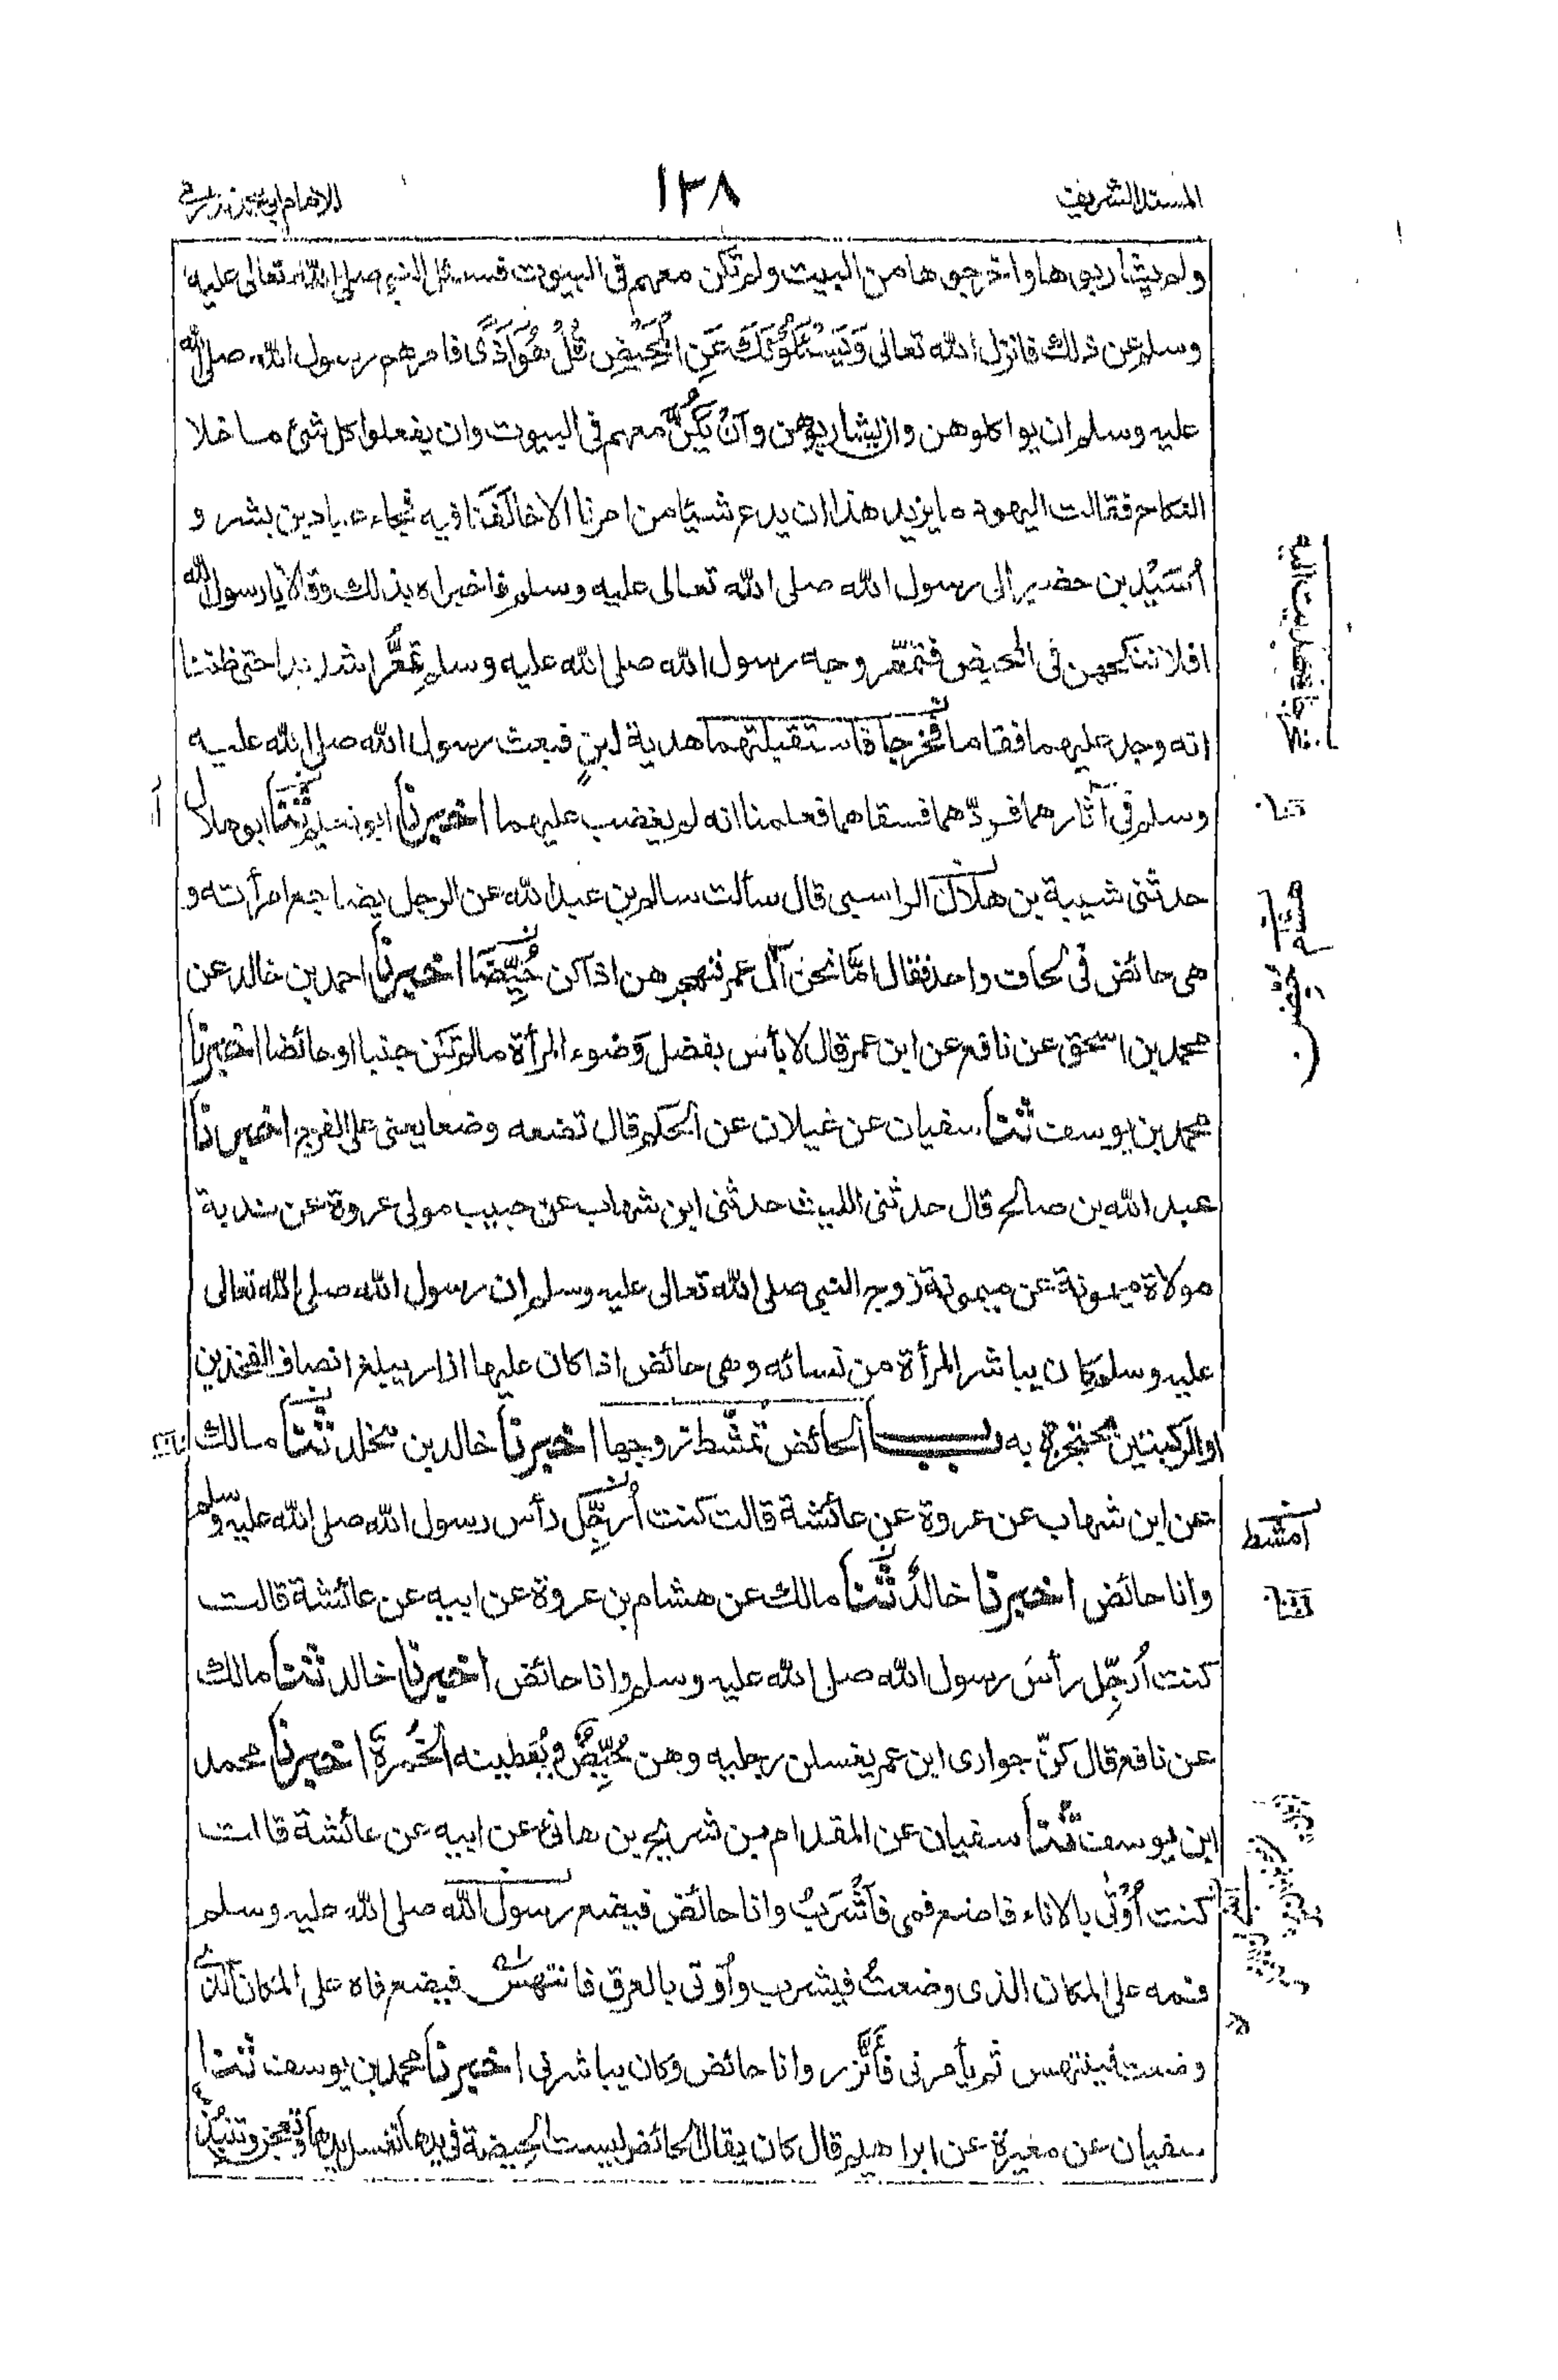 المسند الشريف
١٣٨
ولم يشاربوها واخرجوها من البيت ولم تكن معهم في البيوت فسئل النبي صلى الله تعالى عليه
وسلم عن ذلك فانزل الله تعالى وَيَسْئَلُوْنَكَ عَنِ الْمَحِيْضِ قُلْ هُوَ اَذًى فامرهم رسول الله صلى الله
عليه وسلم ان يواكلوهن وان يشاربوهن وَاَنْ يَكُنَّ معهم في البيوت وان يفعلوا كل شئ ما خلا
النكاح فقالت اليهود ما يريد هذا ان يدع شيئا من امرنا الا خالَفَنا فيه فجاء عباد بن بشر و
اُسَيْد بن حضير الى رسول الله صلى الله تعالى عليه وسلم فاخبراه بذلك وقالا يا رسول الله
افلا ننكحهن في المحيض فتمعّر وجه رسول الله صلى الله عليه وسلم تمعُّرا شديدا حتى ظننا
انه وجد عليهما فقاما فخرجا فاستقبلتهما هدية لبنٍ فبعث رسول الله صلى الله عليه
وسلم في آثارهما فردّهما فسقاهما فعلمنا انه لم يغضب عليهما اخبرنا ابو نعيم ثنا ابو هلال
حدثني شيبة بن هلال الراسبي قال سألت سالم بن عبد الله عن الرجل يضاجع امرأته و
هي حائض في لحاف واحد فقال امّا نحن آل عمر فنهجرهن اذا كن حُيَّضا اخبرنا احمد بن خالد عن
محمد بن اسحق عن نافع عن ابن عمر قال لا بأس بفضل وَضوء المرأة ما لم تكن جنبا او حائضا اخبرنا
محمد بن يوسف ثنا سفيان عن غيلان عن الحكم قال تضعه وضعا يعني على الفرج اخبرنا
عبد الله بن صالح قال حدثني الليث حدثني ابن شهاب عن حبيب مولى عروة عن ندبة
مولاة ميمونة عن ميمونة زوج النبي صلى الله تعالى عليه وسلم ان رسول الله صلى الله تعالى
عليه وسلم كان يباشر المرأة من نسائه وهي حائض اذا كان عليها ازار يبلغ انصاف الفخذين
او الركبتين محتجزة به باب الحائض تمشّط زوجها اخبرنا خالد بن مخلد ثنا مالك
عن ابن شهاب عن عروة عن عائشة قالت كنت اُرجِّل رأس رسول الله صلى الله عليه وسلم
وانا حائض اخبرنا خالد ثنا مالك عن هشام بن عروة عن ابيه عن عائشة قالت
كنت اُرجِّل رأسَ رسول الله صلى الله عليه وسلم وانا حائض اخبرنا خالد ثنا مالك
عن نافع قال كنّ جوارى ابن عمر يغسلن رجليه وهن حُيَّضٌ ويُعطينه الخُمرةَ اخبرنا محمد
ابن يوسف ثنا سفيان عن المقدام بن شريح بن هانئ عن ابيه عن عائشة قالت
كنت اُوْتٰى بالاناء فاضع فمي فاَشْرَبُ وانا حائض فيضع رسول الله صلى الله عليه وسلم
فمه على المكان الذي وضعتُ فيشرب واُوتى بالعرق فانتهس فيضع فاه على المكان الذي
وضعت فينتهس ثم يأمرني فأَتَّزِر وانا حائض وكان يباشرني اخبرنا محمد بن يوسف ثنا
سفيان عن مغيرة عن ابراهيم قال كان يقال الحائض ليست الحيضة في يدها تغسل يدها وتعجن وتنبُذ
هشام
حُيَّض
امشط